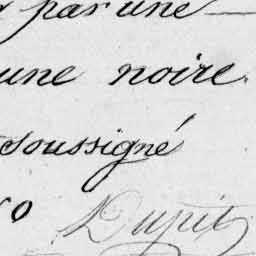 par une
une noire
soussigné
Dupit